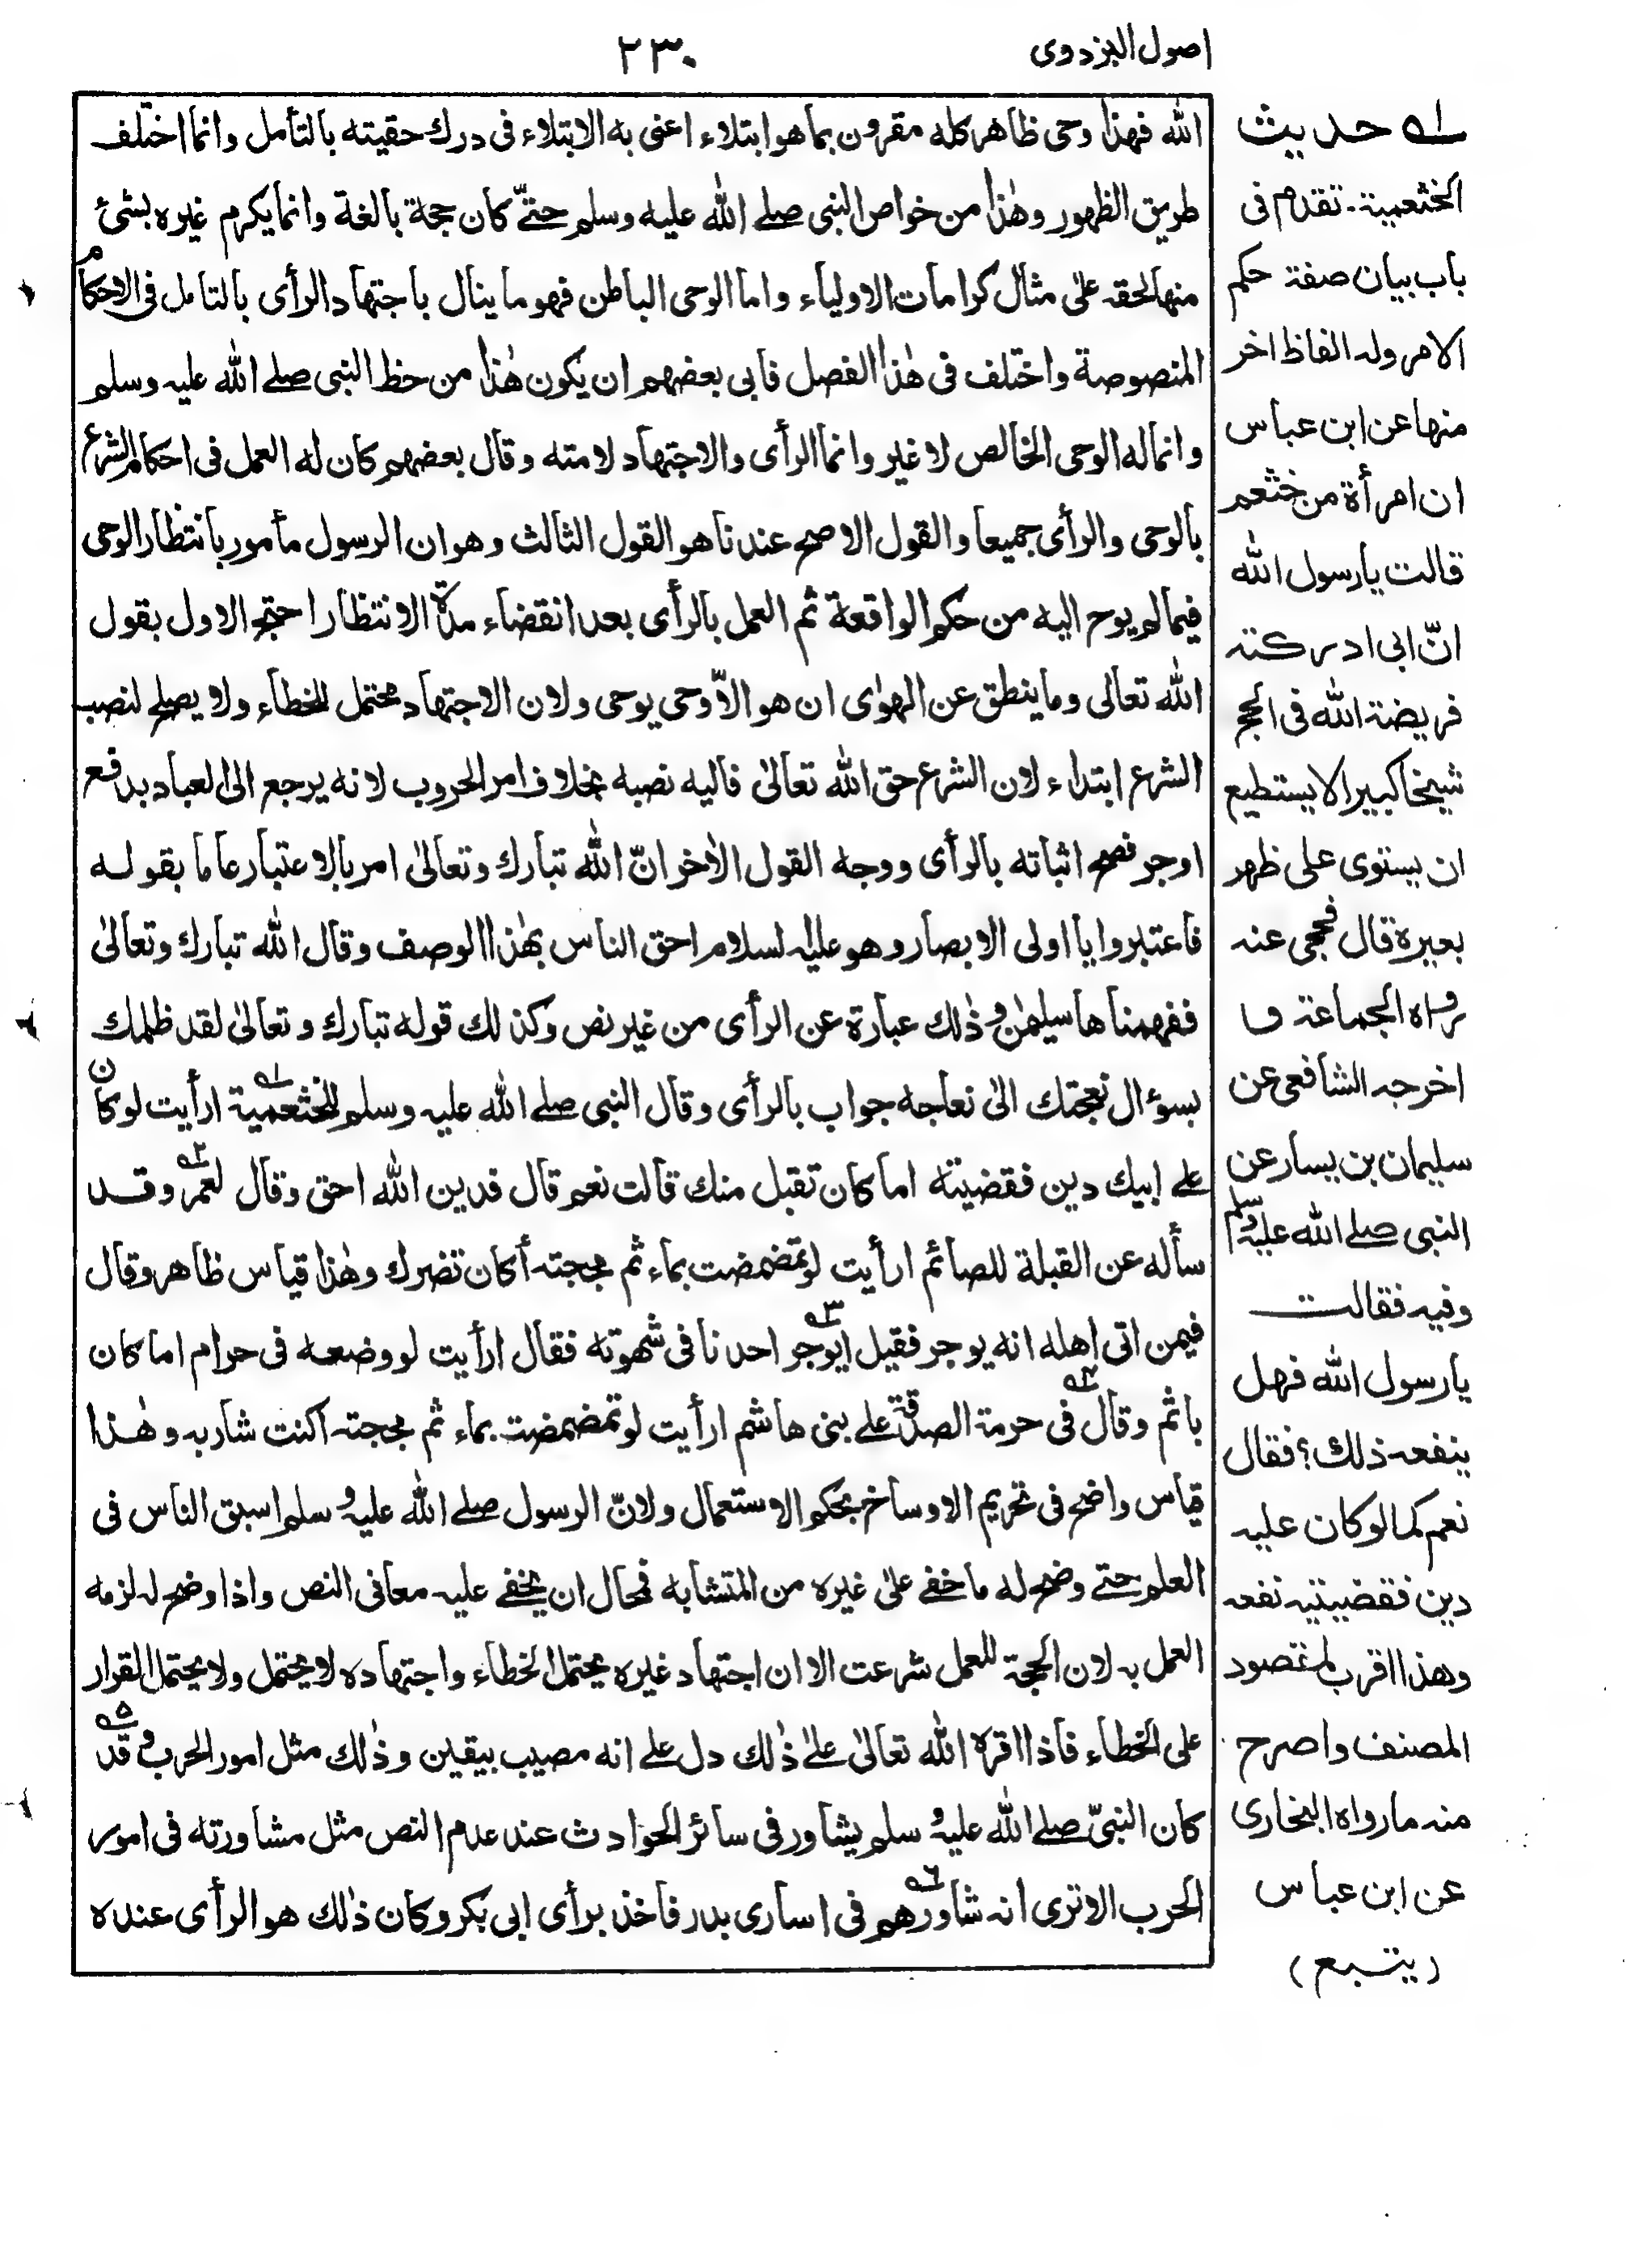 اصول البزدوی
۲۳۰
الله فهذا وحی ظاهر كله مقرون بما هو ابتلاء اعنی به الابتلاء فی درك حقيته بالتأمل وانما اختلف
طريق الظهور وهٰذا من خواص النبی صلے الله عليه وسلم حتّے كان حجة بالغة وانما يكرم غيره بشئ
منها لحقه علٰی مثال كرامات الاولياء واما الوحی الباطن فهو ما ينال باجتهاد الرأی بالتامل فی الاحكام
المنصوصة واختلف فی هٰذا الفصل فابی بعضهم ان يكون هٰذا من حظ النبی صلے الله عليه وسلم
وانما له الوحی الخالص لا غير وانما الرأی والاجتهاد لامته وقال بعضهم كان له العمل فی احكام الشرع
بالوحی والرأی جميعا والقول الاصح عندنا هو القول الثالث وهو ان الرسول مأمور بانتظار الوحی
فيما لم يوح اليه من حكم الواقعة ثم العمل بالرأی بعد انقضاء مدة الانتظار احتج الاول بقول
الله تعالی وما ينطق عن الهوٰی ان هو الاّ وحی يوحی ولان الاجتهاد محتمل للخطاء ولا يصلح لنصب
الشرع ابتداء لان الشرع حق الله تعالیٰ فاليه نصبه بخلاف امر الحروب لانه يرجع الی العباد بدفع
او جر فصح اثباته بالرأی ووجه القول الاٰخر انّ الله تبارك وتعالیٰ امر بالاعتبار عاما بقوله
فاعتبروا يا اولی الابصار وهو عليه السلام احق الناس بهٰذا الوصف وقال الله تبارك وتعالیٰ
ففهمناها سليمٰن وذٰلك عبارة عن الرأی من غير نص وكذلك قوله تبارك وتعالیٰ لقد ظلمك
بسؤال نعجتك الیٰ نعاجه جواب بالرأی وقال النبی صلے الله عليه وسلم للخثعمية ۱ ارأيت لو كان
علے ابيك دين فقضيته اما كان تقبل منك قالت نعم قال فدين الله احق وقال لعمر ۲ وقد
سأله عن القبلة للصائم ارأيت لو تمضمضت بماء ثم مججته أكان تضرك وهٰذا قياس ظاهر وقال
فيمن اتی اهله انه يوجر فقيل ايوجر ۳ احدنا فی شهوته فقال ارأيت لو وضعه فی حرام اما كان
ياثم وقال ۴ فی حرمة الصدقة علے بنی هاشم ارأيت لو تمضمضت بماء ثم مججته اكنت شاربه وهٰذا
قياس واضح فی تحريم الاوساخ بحكم الاستعمال ولانّ الرسول صلے الله عليه وسلم اسبق الناس فی
العلم حتے وضح له ما خفے علیٰ غيره من المتشابه فمحال ان يخفے عليه معانی النص واذا وضح له لزمه
العمل به لان الحجة للعمل شرعت الا ان اجتهاد غيره يحتمل الخطاء واجتهاده لا يحتمل ولا يحتمل القرار
علی الخطاء فاذا اقره الله تعالیٰ علےٰ ذٰلك دل علے انه مصيب بيقين وذٰلك مثل امور الحرب وقد ۵
كان النبیّ صلے الله عليه وسلم يشاور فی سائر الحوادث عند عدم النص مثل مشاورته فی امور
الحرب الا تری انه شاورهم ۶ فی اساری بدر فاخذ برأی ابی بكر وكان ذٰلك هو الرأی عنده
۱ حديث
الخثعمية۔ تقدم فی
باب بيان صفة حكم
الامر وله الفاظ اخر
منها عن ابن عباس
ان امرأة من خثعم
قالت يا رسول الله
انّ ابی ادركته
فريضة الله فی الحج
شيخا كبيرا لا يستطيع
ان يستوی علی ظهر
بعيره قال فحجی عنه
رواه الجماعة و
اخرجه الشافعی عن
سليمان بن يسار عن
النبی صلے الله عليه وسلم
وفيه فقالت
يا رسول الله فهل
ينفعه ذلك؟ فقال
نعم كما لو كان عليه
دين فقضيتيه نفعه
وهذا اقرب لمقصود
المصنف واصرح
منه ما رواه البخاری
عن ابن عباس
(يتبع)